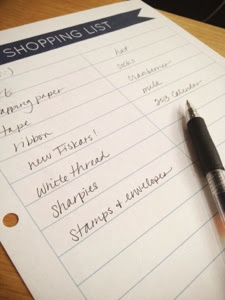 SHOPPING LIST
apping paper
tape
ribbon
new Fiskars!
white thread
Sharpies
Stamps & envelopes
hat
socks
milk
2013 calendar